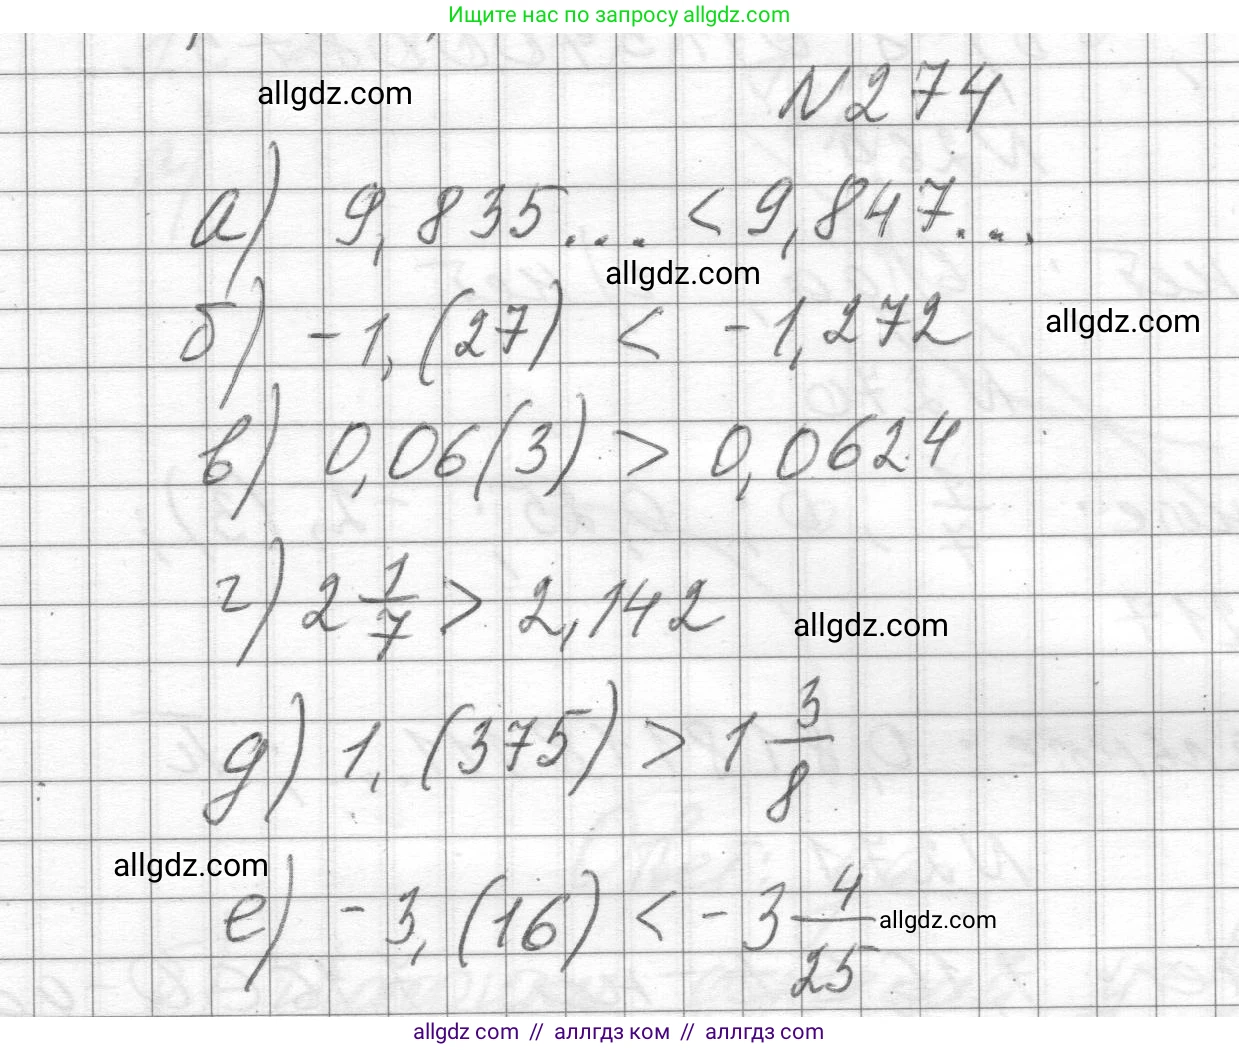 Ищите нас по запросу allgdz.com
allgdz.com
N 274
а) 9,835... < 9,847...
allgdz.com
б) -1,(27) < -1,272
allgdz.com
в) 0,06(3) > 0,0624
г) 2 1/7 > 2,142
allgdz.com
д) 1,(375) > 1 3/8
allgdz.com
е) -3,(16) < -3 4/25
allgdz.com
allgdz com // аллгдз ком // аллгдз com